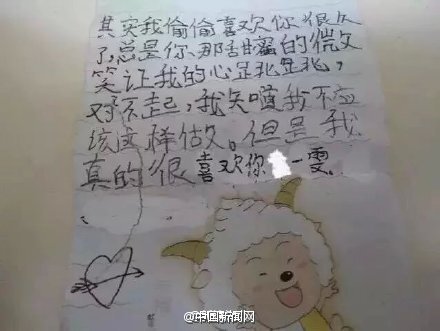 其实我偷偷喜欢你很久
了,总是你那甜蜜的微
笑让我的心
对不起,我知道我不应
该这样做。但是我
真的很喜欢你 一雯
@中国新闻网